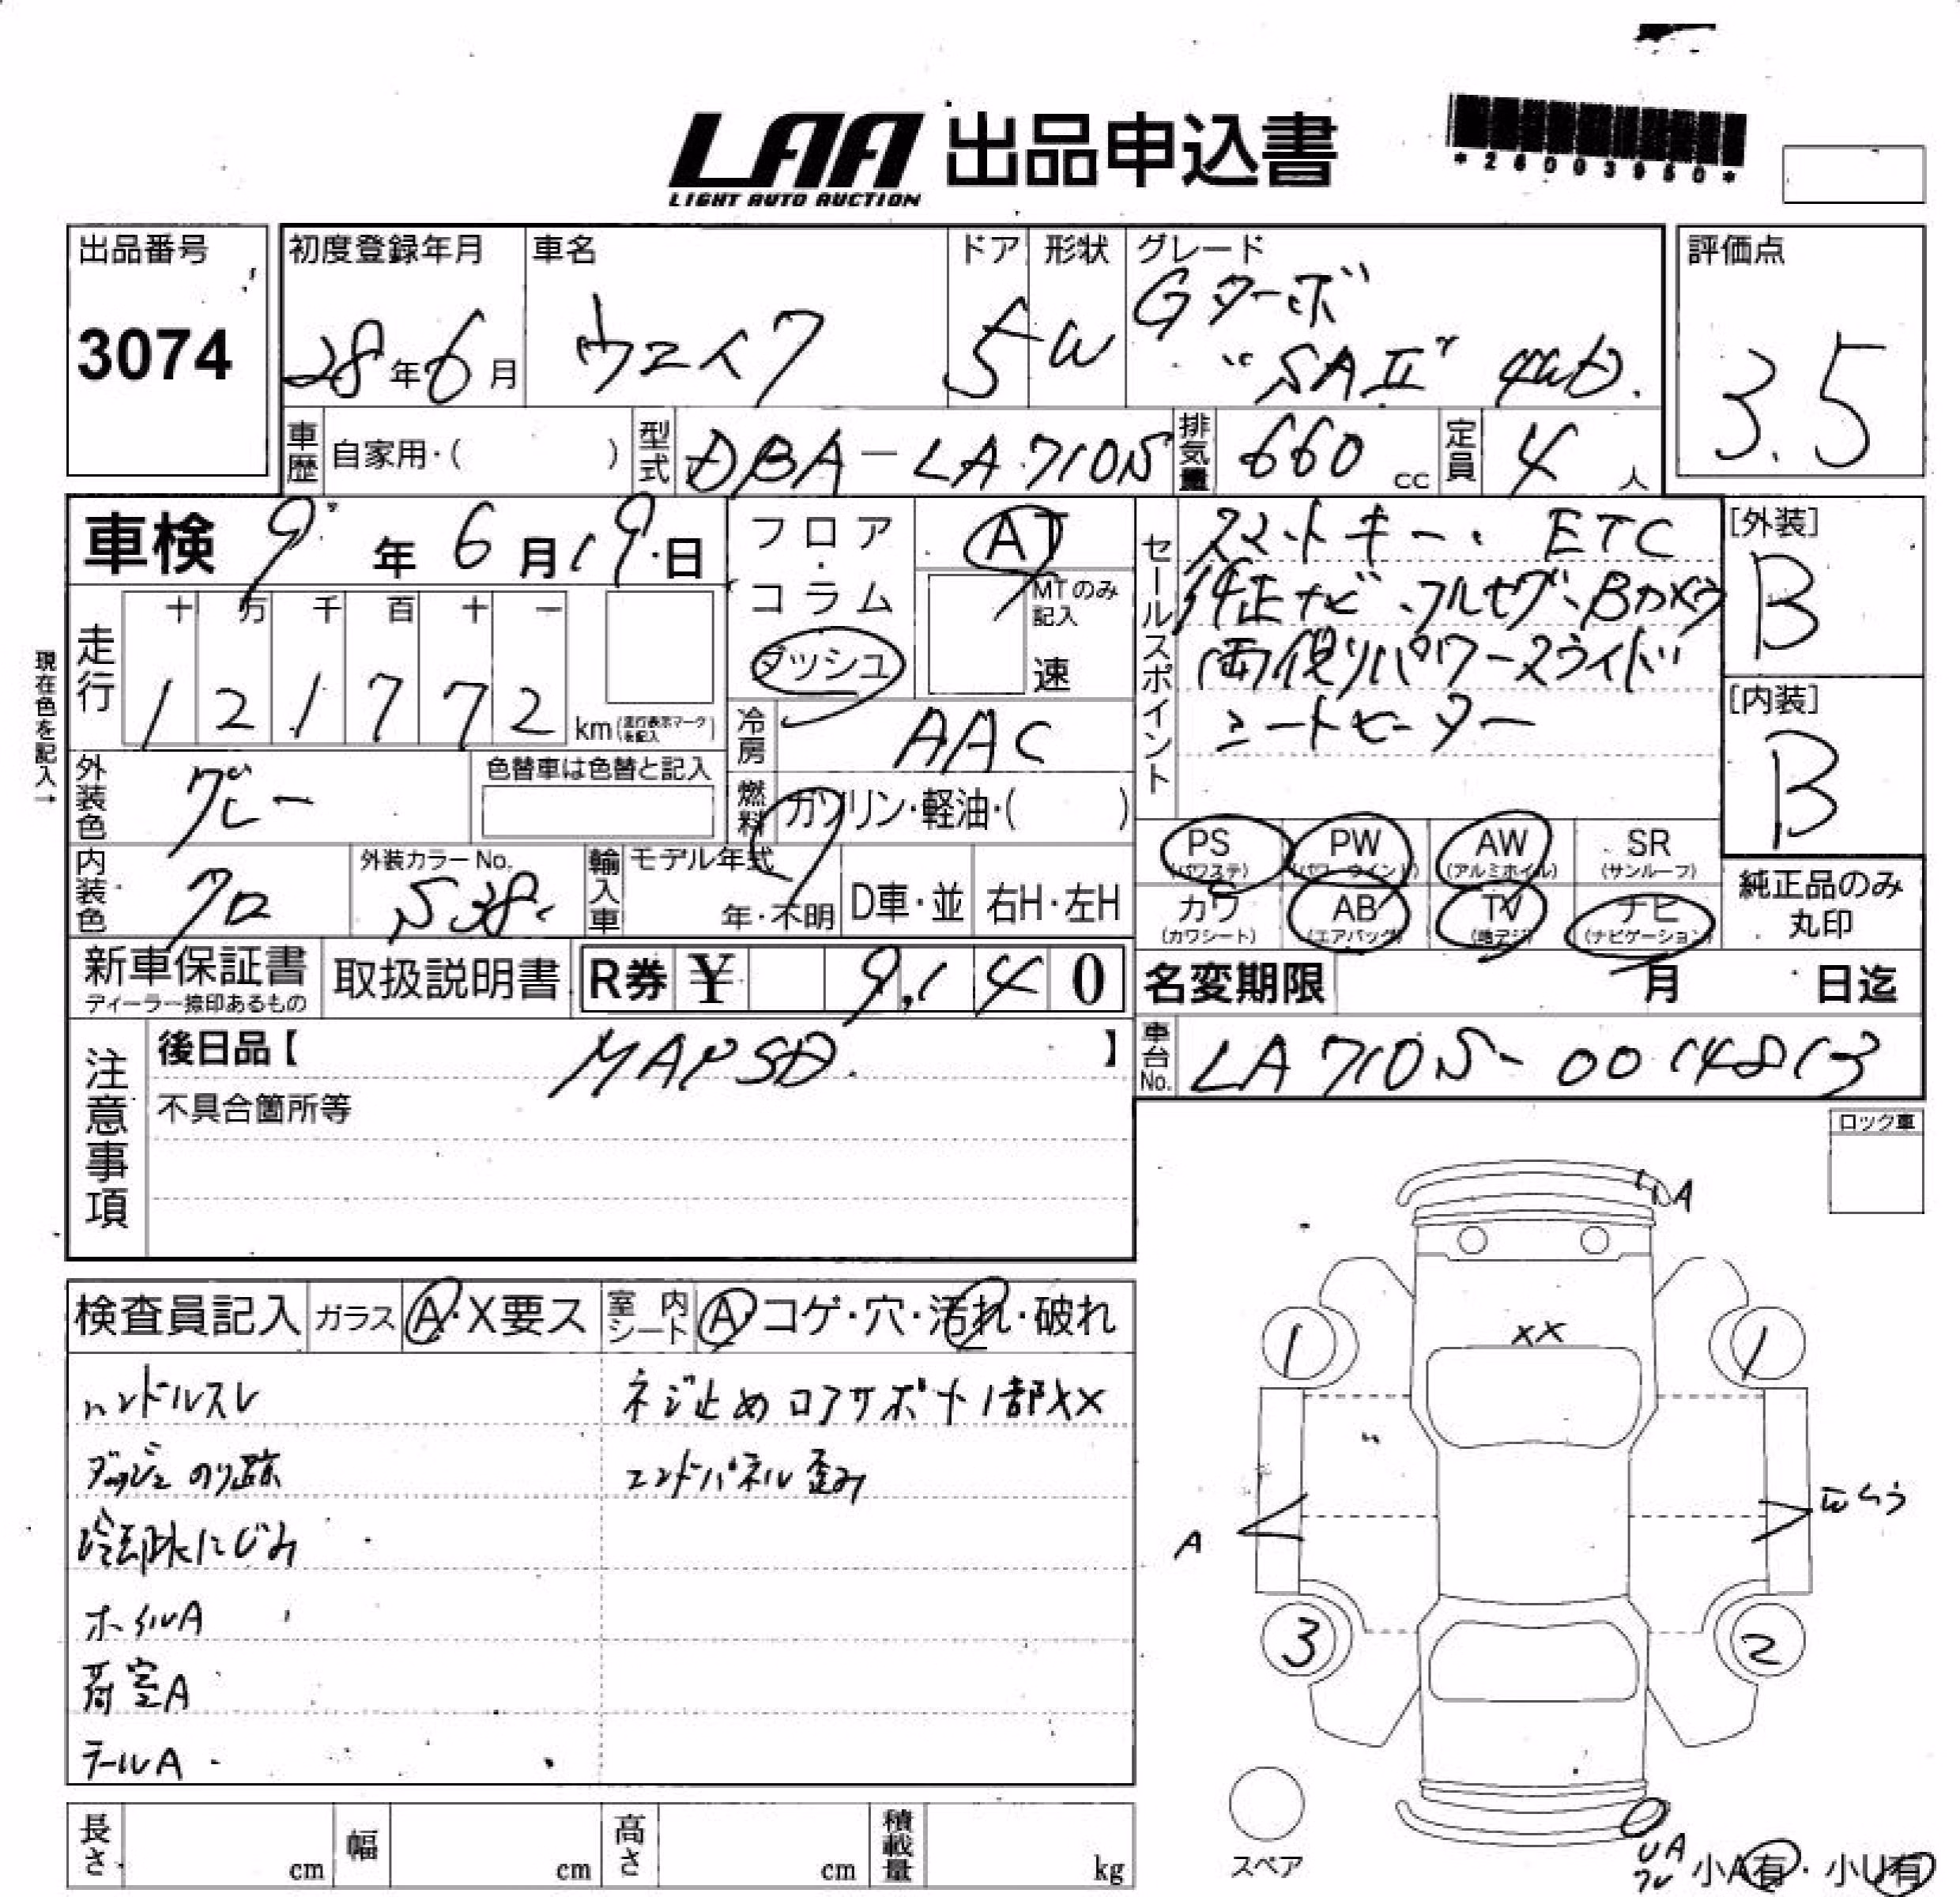 LAA 出品申込書
LIGHT AUTO AUCTION
*26003950*
出品番号
3074
初度登録年月
28年6月
車名
ウエイク
ドア
5
形状
W
グレード
Gターボ
"SAⅡ" 4WD.
評価点
3.5
車歴
自家用・( )
型式
DBA-LA710S
排気量
660 cc
定員
4人
車検 9年6月19日
フロア・コラム
ダッシュ
AT
MTのみ記入
速
セールスポイント
スマートキー、ETC
純正ナビ、フルセグ、Bカメラ
両側パワースライド
シートヒーター
[外装]
B
[内装]
B
現在色を記入→
走行
十万千百十一
121772
km(走行表示マークを記入)
冷房
AAC
外装色
グレー
色替車は色替と記入
燃料
ガソリン・軽油・( )
PS
(パワステ)
PW
(パワーウインド)
AW
(アルミホイル)
SR
(サンルーフ)
純正品のみ
丸印
カワ
(カワシート)
AB
(エアバッグ)
TV
(地デジ)
ナビ
(ナビゲーション)
内装色
クロ
外装カラーNo.
S38
輸入車
モデル年式
年・不明
D車・並
右H・左H
新車保証書
ディーラー捺印あるもの
取扱説明書
R券 ¥ 9,140
名変期限 月 日迄
注意事項
後日品【 MAPSD. 】
車台No.
LA710S-0014813
不具合箇所等
ロック車
検査員記入
ガラス
A・X要ス
室内シート
A・コゲ・穴・汚れ・破れ
ハンドルスレ
ネジ止めコアサポート1部XX
ダッシュのり跡
エンドパネル歪み
冷却水にじみ
ホイルA
荷室A
テールA
A
XX
1
1
A
3
2
スペア
UA
小A有・小U有
長さ cm
幅 cm
高さ cm
積載量 kg